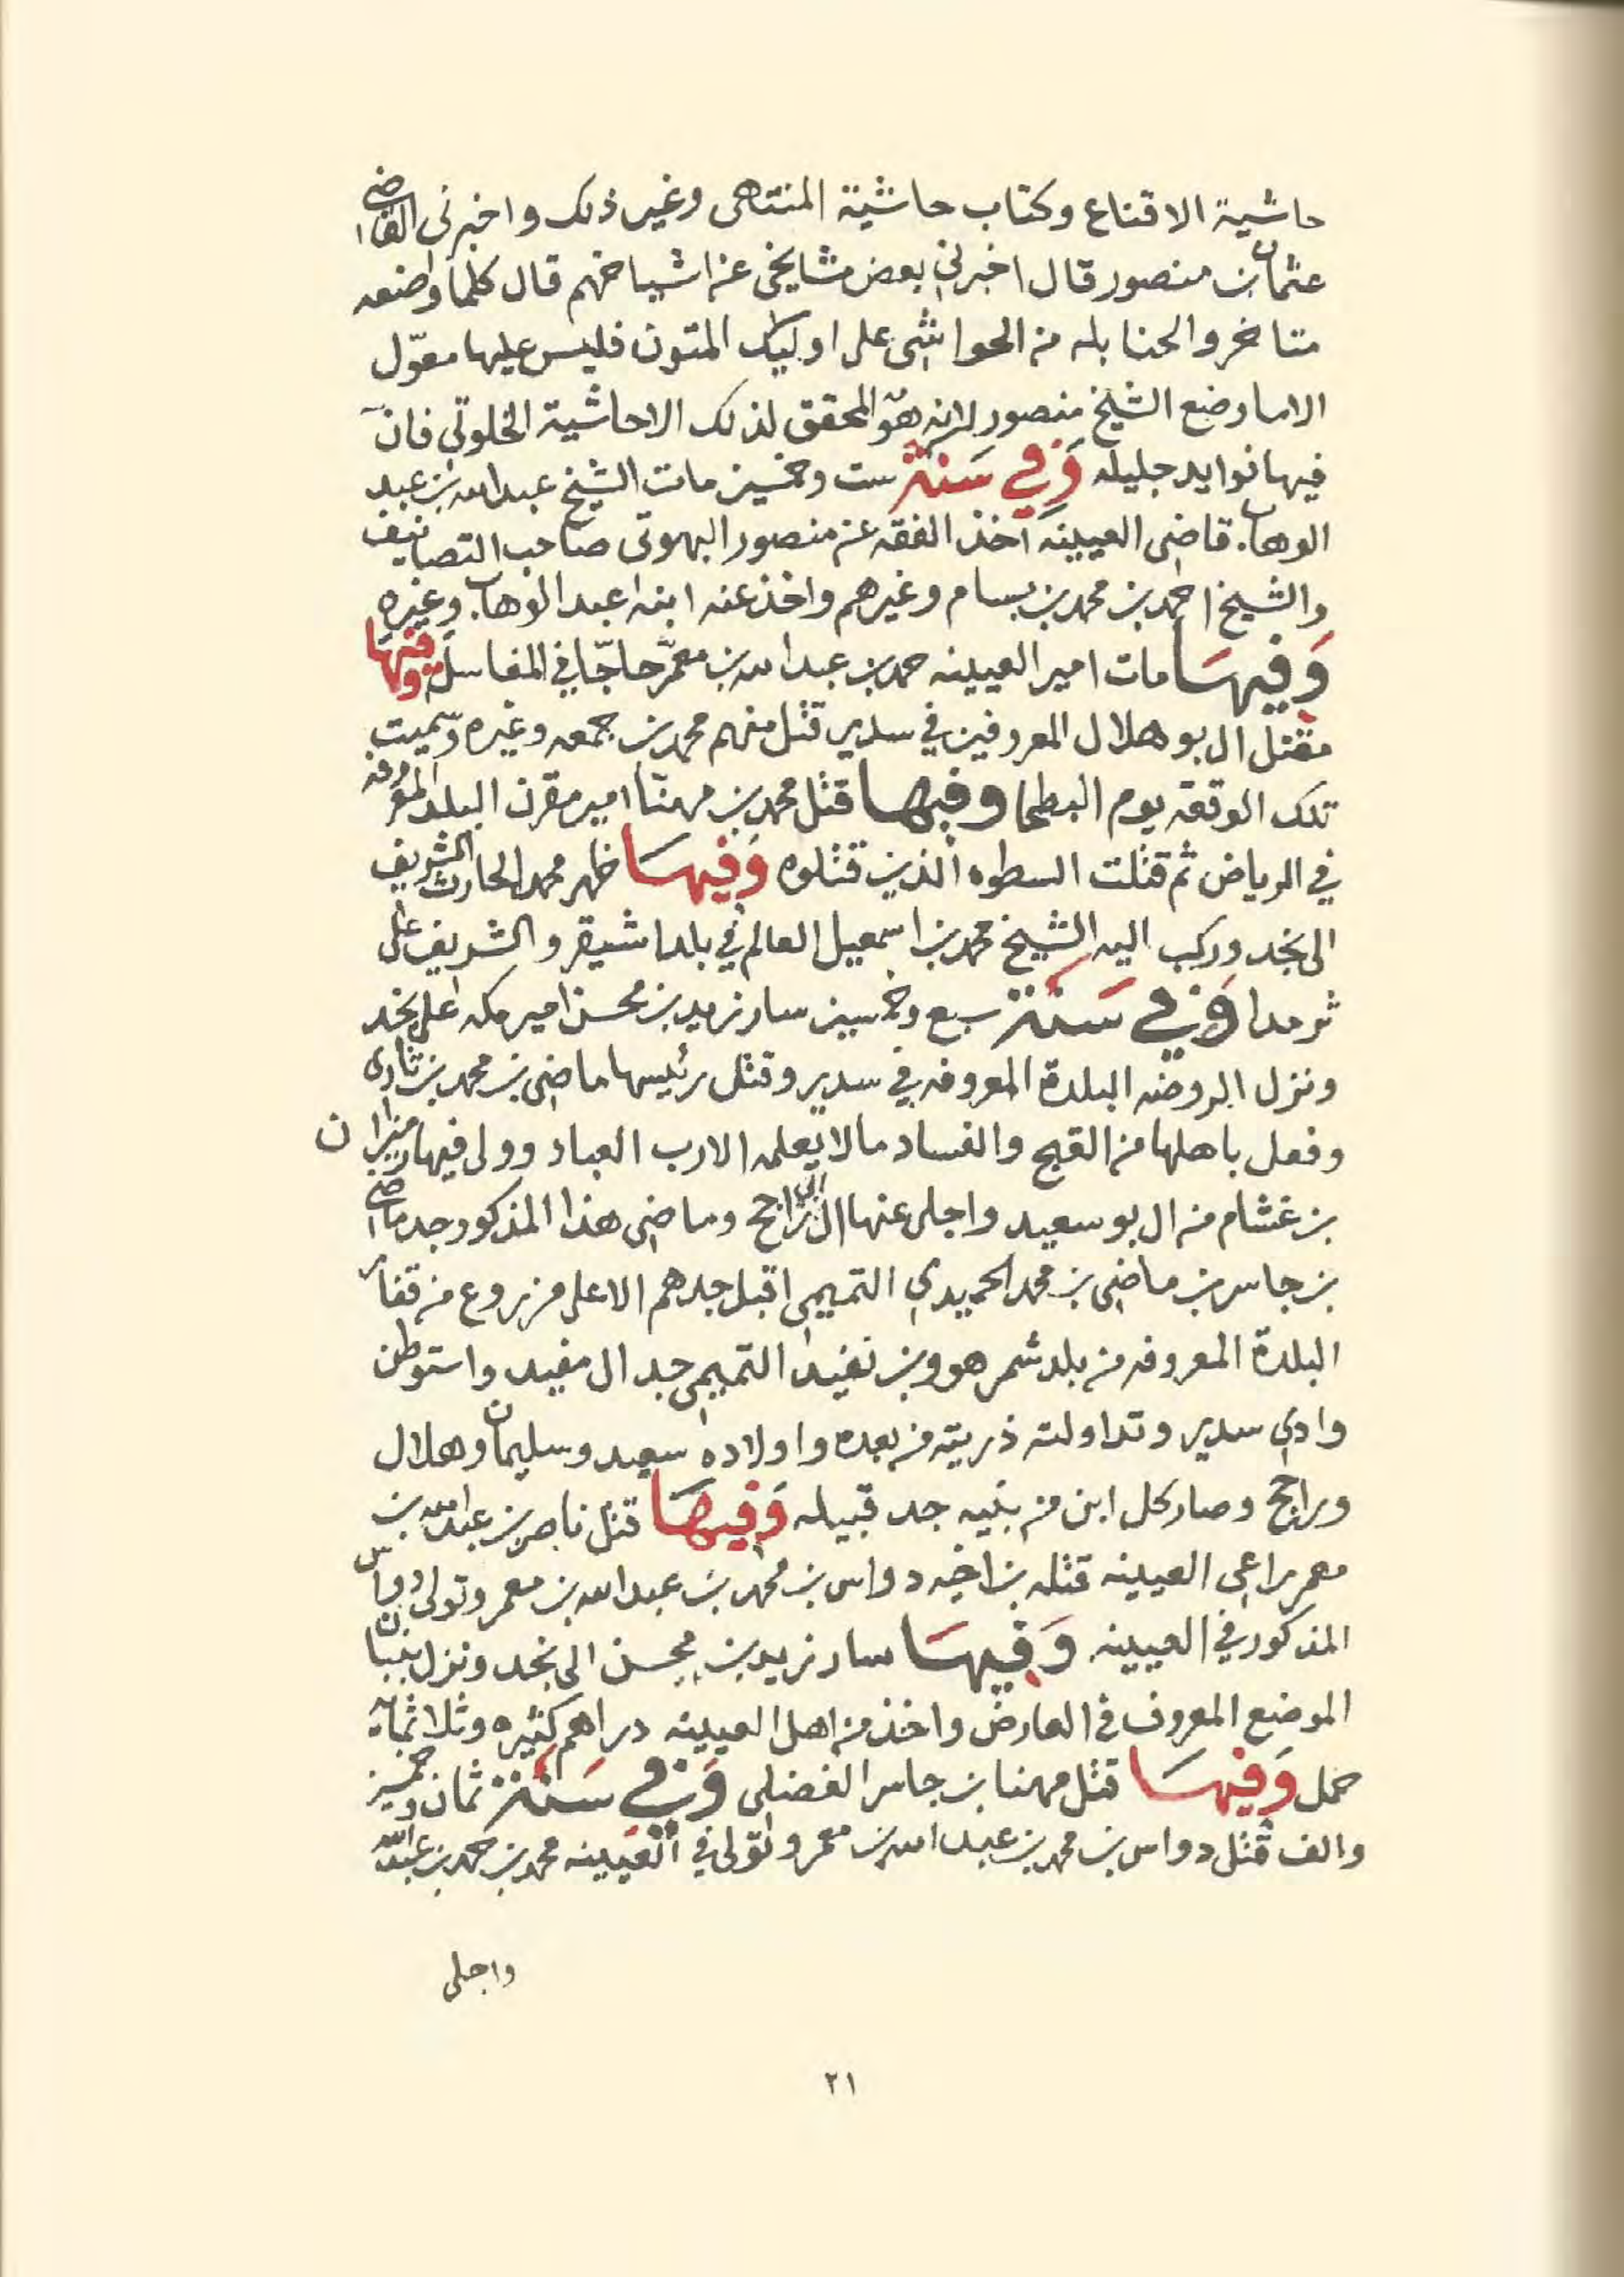 حاشية الاقناع وكتاب حاشية المنتهى وغير ذلك واخبرنى القاضي
عثمان بن منصور قال اخبرني بعض مشايخى عن اشياخهم قال كلما وضعه
متاخرو الحنابله من الحواشى على اوليك المتون فليس عليها معوّل
الا ما وضع الشيخ منصور لانه هو المحقق لذلك الا حاشية الخلوتي فان
فيها فوايد جليله وَفِي سَنة ست وخمسين مات الشيخ عبدالله بن عبد
الوهاب قاضى العيينه اخذ الفقه عن منصور البهوتى صاحب التصانيف
والشيخ احمد بن محمد بن بسام وغيرهم واخذ عنه ابنه عبد الوهاب وغيره
وَفيهَا مات امير العيينه حمد بن عبدالله بن معمّر حاجّا في المغاسل وفيها
مقتل ال بو هلال المعروفين في سدير قتل منهم محمد بن جمعه وغيره وسميت
تلك الوقعه يوم البطحا وفيها قتل محمد بن مهنّا امير مقرن البلد المعروفه
في الرياض ثم قتلت السطوه الذين قتلوه وَفيهَا ظهر محمد الحارث الشريف
الى نجد وركب اليه الشيخ محمد بن اسمعيل العالم في بلد اشيقر والشريف على
ثرمدا وَفِي سَنة سبع وخمسين سار زيد بن محسن امير مكه على نجد
ونزل الروضه البلدة المعروفه في سدير وقتل رئيسها ماضى بن محمد بن ثارى
وفعل باهلها من القبح والفساد ما لا يعلمه الا رب العباد وولى فيها رميزان
بن غشام من ال بو سعيد واجلى عنها ال ابي راجح وماضى هذا المذكور جد ماضي
بن جاسر بن ماضى بن محمد الحميدي التميمى اقبل جدهم الاعلى مزروع من قفار
البلدة المعروفه من بلد شمر هو وبن نفيد التميمى جد ال مفيد واستوطن
وادي سدير وتداولته ذريته من بعده واولاده سعيد وسليمان وهلال
وراجح وصار كل ابن من بنيه جد قبيله وَفيهَا قتل ناصر بن عبدالله بن
معمر راعي العيينه قتله بن اخيه دواس بن محمد بن عبدالله بن معمر وتولى دواس
المذكور في العيينه وَفيهَا سار زيد بن محسن الى نجد ونزل بنبان
الموضع المعروف في العارض واخذ من اهل العيينه دراهم كثيره وثلاثماية
حمل وَفيهَا قتل مهنا بن جاسر الفضلى وَفِي سَنة ثمان وخمسين
والف قتل دواس بن محمد بن عبدالله بن معمر وتولى في العيينه محمد بن حمد بن عبدالله
واجلى
٢١